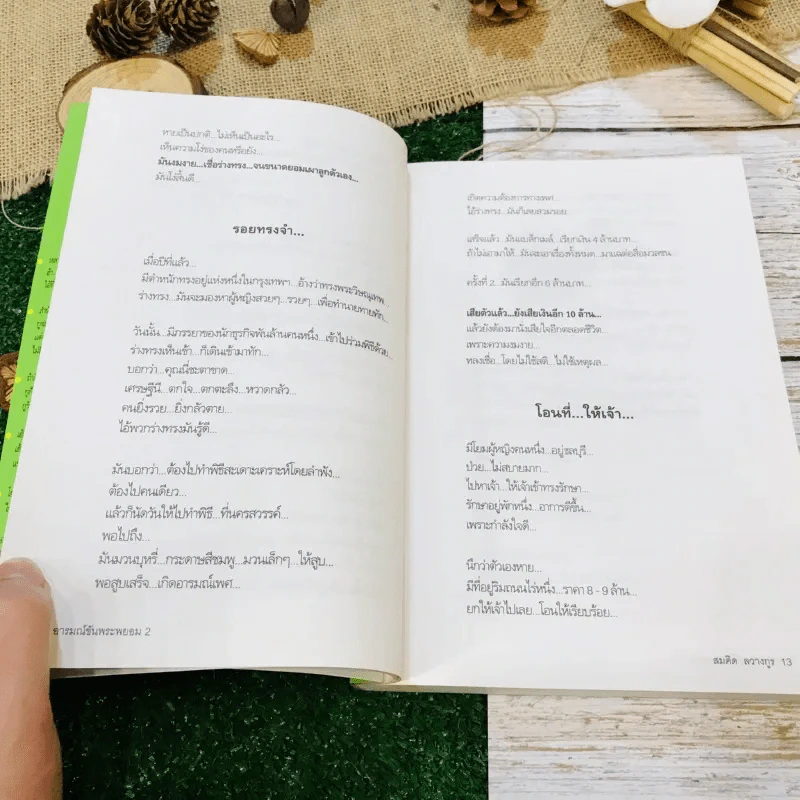 ทายเป็นปกติ...ไม่เห็นเป็นอะไร...
เห็นความโง่ของคนหรือยัง...
มันงมงาย...เชื่อร่างทรง...จนขนาดยอมเผาลูกตัวเอง...
มันโง่สิ้นดี...
รอยทรงจำ...
เมื่อปีที่แล้ว...
มีตำหนักทรงอยู่แห่งหนึ่งในกรุงเทพฯ...อ้างว่าทรงพระวิษณุเทพ...
ร่างทรง...มันจะมองหาผู้หญิงสวยๆ...รวยๆ...เพื่อทำนายทายทัก...
วันนั้น...มีภรรยาของนักธุรกิจพันล้านคนหนึ่ง...เข้าไปร่วมพิธีด้วย...
ร่างทรงเห็นเข้า...ก็เดินเข้ามาทัก...
บอกว่า...คุณนี่ชะตาขาด...
เศรษฐีนี...ตกใจ...ตกตะลึง...หวาดกลัว...
คนยิ่งรวย...ยิ่งกลัวตาย...
ไอ้พวกร่างทรงมันรู้ดี...
มันบอกว่า...ต้องไปทำพิธีสะเดาะเคราะห์โดยลำพัง...
ต้องไปคนเดียว...
แล้วก็นัดวันให้ไปทำพิธี...ที่นครสวรรค์...
พอไปถึง...
มันมวนบุหรี่...กระดาษสีชมพู...มวนเล็กๆ...ให้สูบ...
พอสูบเสร็จ...เกิดอารมณ์เพศ...
อารมณ์ขันพระพยอม 2
เกิดความต้องการทางเพศ...
ไอ้ร่างทรง...มันก็เลยสวมรอย...
เสร็จแล้ว...มันแบล็กเมล์...เรียกเงิน 4 ล้านบาท...
ถ้าไม่เอามาให้...มันจะเอาเรื่องทั้งหมด...มาแฉต่อสื่อมวลชน...
ครั้งที่ 2...มันเรียกอีก 6 ล้านบาท...
เสียตัวแล้ว...ยังเสียเงินอีก 10 ล้าน...
แล้วยังต้องมานั่งเสียใจอีกตลอดชีวิต...
เพราะความงมงาย...
หลงเชื่อ...โดยไม่ใช้สติ...ไม่ใช้เหตุผล...
โอนที่...ให้เจ้า...
มีโยมผู้หญิงคนหนึ่ง...อยู่ชลบุรี...
ป่วย...ไม่สบายมาก...
ไปหาเจ้า...ให้เจ้าเข้าทรงรักษา...
รักษาอยู่พักหนึ่ง...อาการดีขึ้น...
เพราะกำลังใจดี...
นึกว่าตัวเองหาย...
มีที่อยู่ริมถนนไร่หนึ่ง...ราคา 8 - 9 ล้าน...
ยกให้เจ้าไปเลย...โอนให้เรียบร้อย...
สมคิด ลวางกูร 13